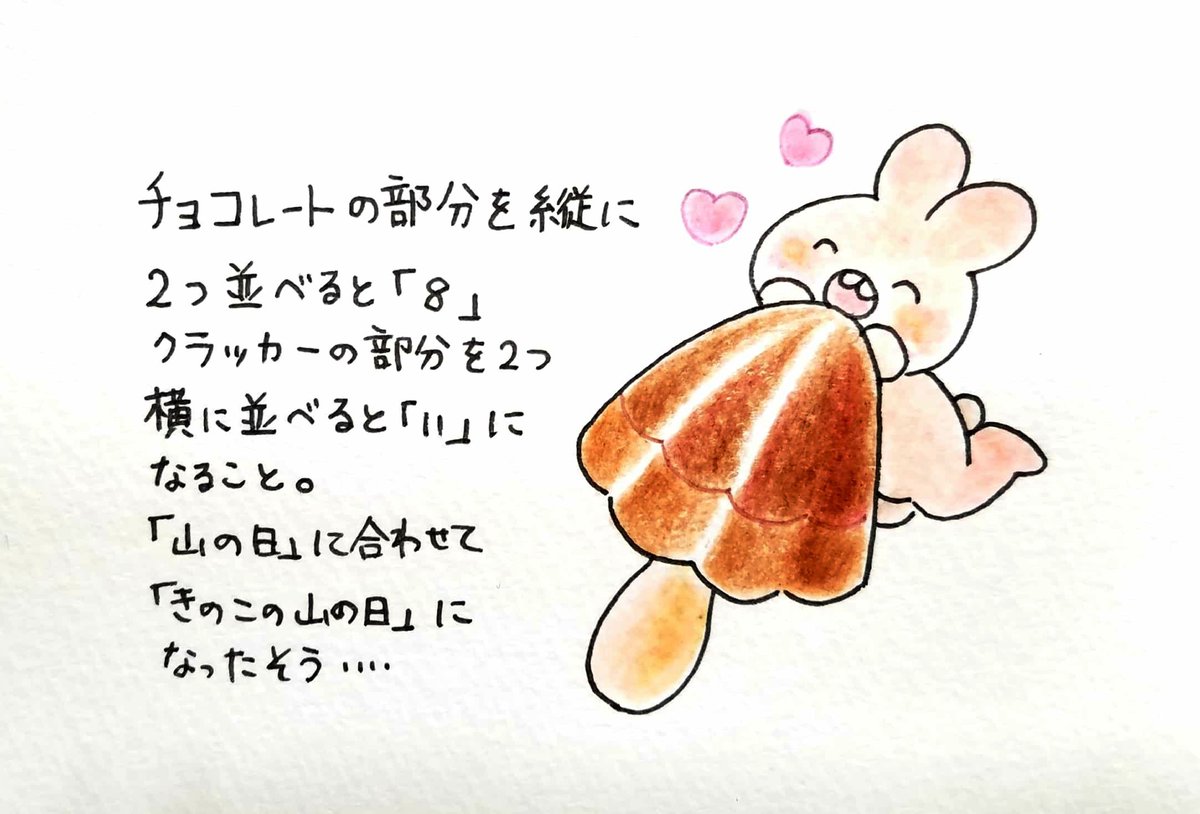 チョコレートの部分を縦に
2つ並べると「8」
クラッカーの部分を2つ
横に並べると「11」に
なること。
「山の日」に合わせて
「きのこの山の日」に
なったそう‥‥